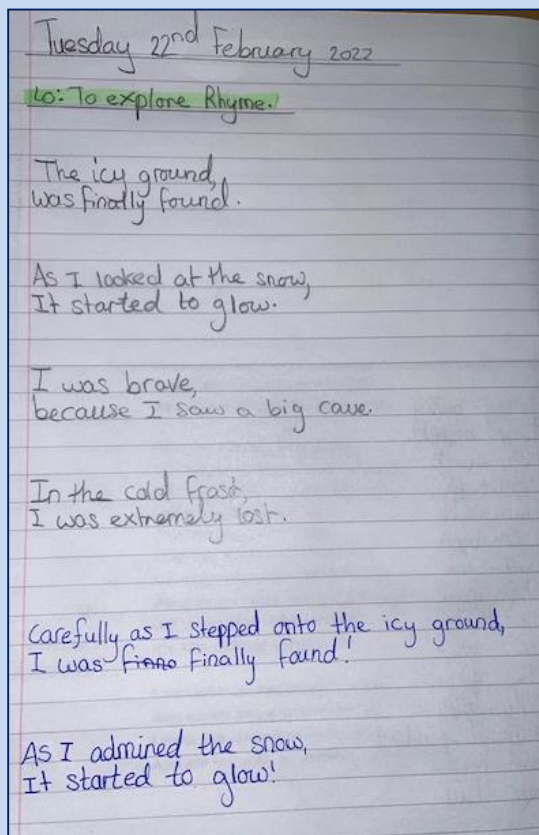 Tuesday 22nd February 2022
LO: To explore Rhyme.
The icy ground,
was finally found.
As I looked at the snow,
It started to glow.
I was brave,
because I saw a big cave.
In the cold frost,
I was extremely lost.
Carefully as I stepped onto the icy ground,
I was finally found!
As I admired the snow,
It started to glow!